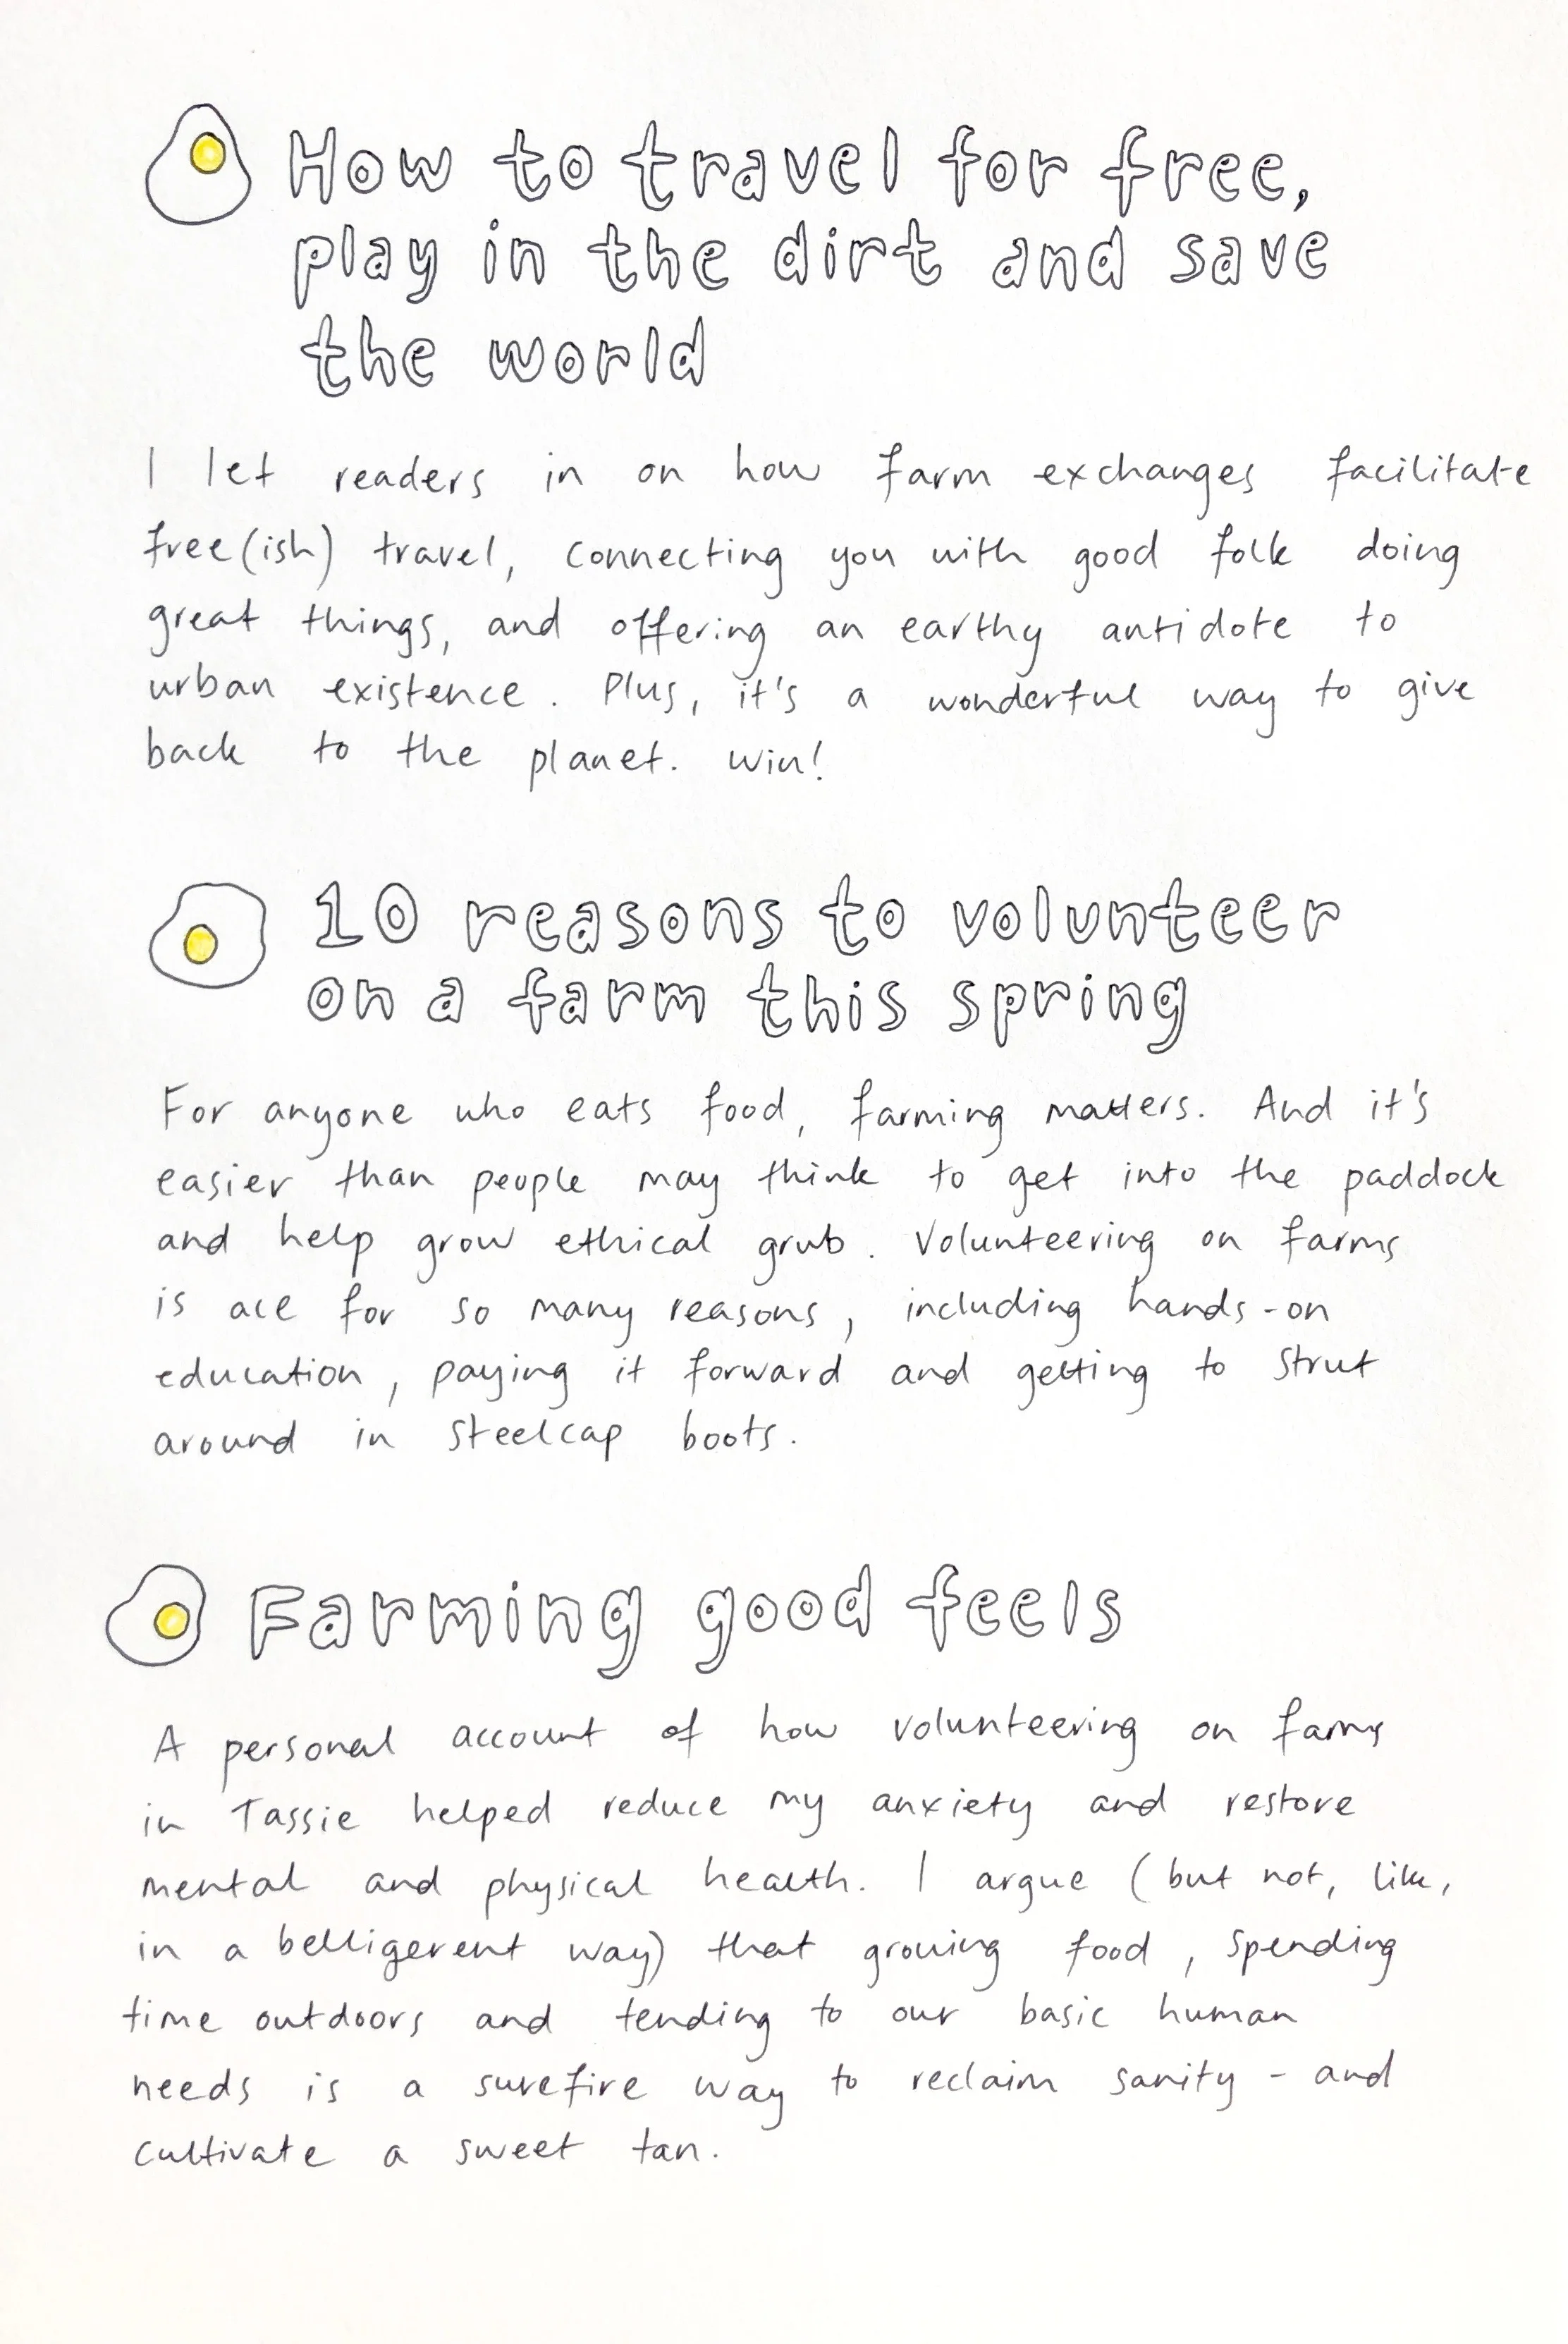 How to travel for free,
play in the dirt and save
the world
I let readers in on how farm exchanges facilitate
free(ish) travel, connecting you with good folk doing
great things, and offering an earthy antidote to
urban existence. Plus, it's a wonderful way to give
back to the planet. Win!
10 reasons to volunteer
on a farm this spring
For anyone who eats food, farming matters. And it's
easier than people may think to get into the paddock
and help grow ethical grub. Volunteering on farms
is ace for so many reasons, including hands-on
education, paying it forward and getting to strut
around in steelcap boots.
Farming good feels
A personal account of how volunteering on farms
in Tassie helped reduce my anxiety and restore
mental and physical health. I argue (but not, like,
in a belligerent way) that growing food, spending
time outdoors and tending to our basic human
needs is a surefire way to reclaim sanity - and
cultivate a sweet tan.